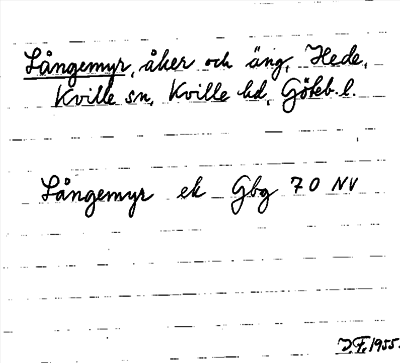 Långemyr, åker och äng, Hede,
Kville sn, Kville hd, Göteb. l.
Långemyr ek Gbg 70 NV
D.F. 1955.